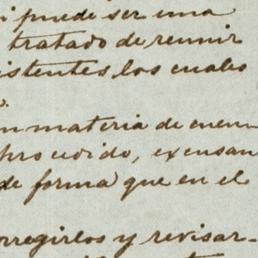 i puede ser una
tratado de reunir
istentes los cuales
o.
n materia de cuen
pro cedido, excusan
de forma que en el
rregirlos y revisar-